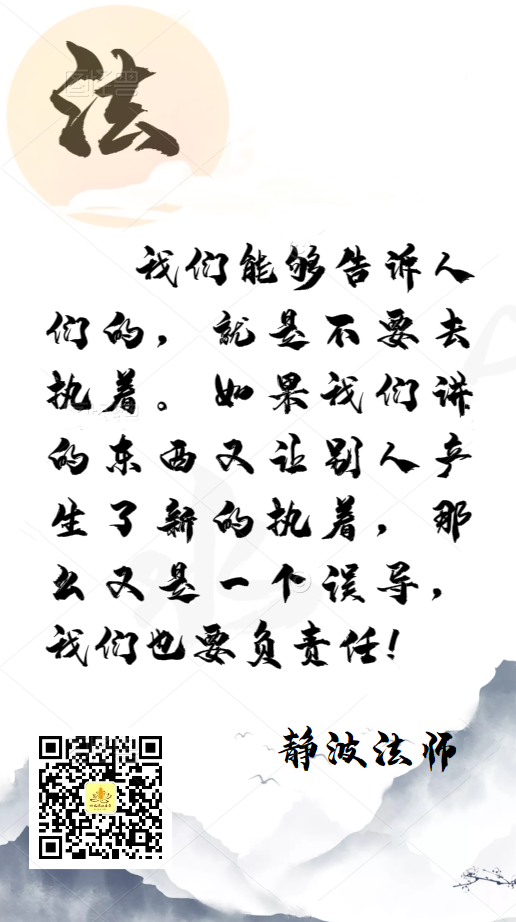 法
我们能够告诉人
们的，就是不要去
执着。如果我们讲
的东西又让别人产
生了新的执着，那
么又是一个误导，
我们也要负责任！
静波法师